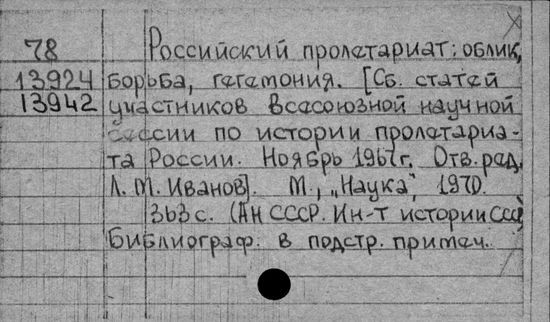 78 Российский пролетариат: облик,
13924 борьба, гегемония. [Сб. статей
13942 участников Всесоюзной научной
сессии по истории пролетариа-
та России. Ноябрь 1967г. Отв. ред.
Л. М. Иванов]. М., „Наука", 1970.
363 с. (АН СССР. Ин-т истории СССР)
Библиограф. в подстр. примеч.